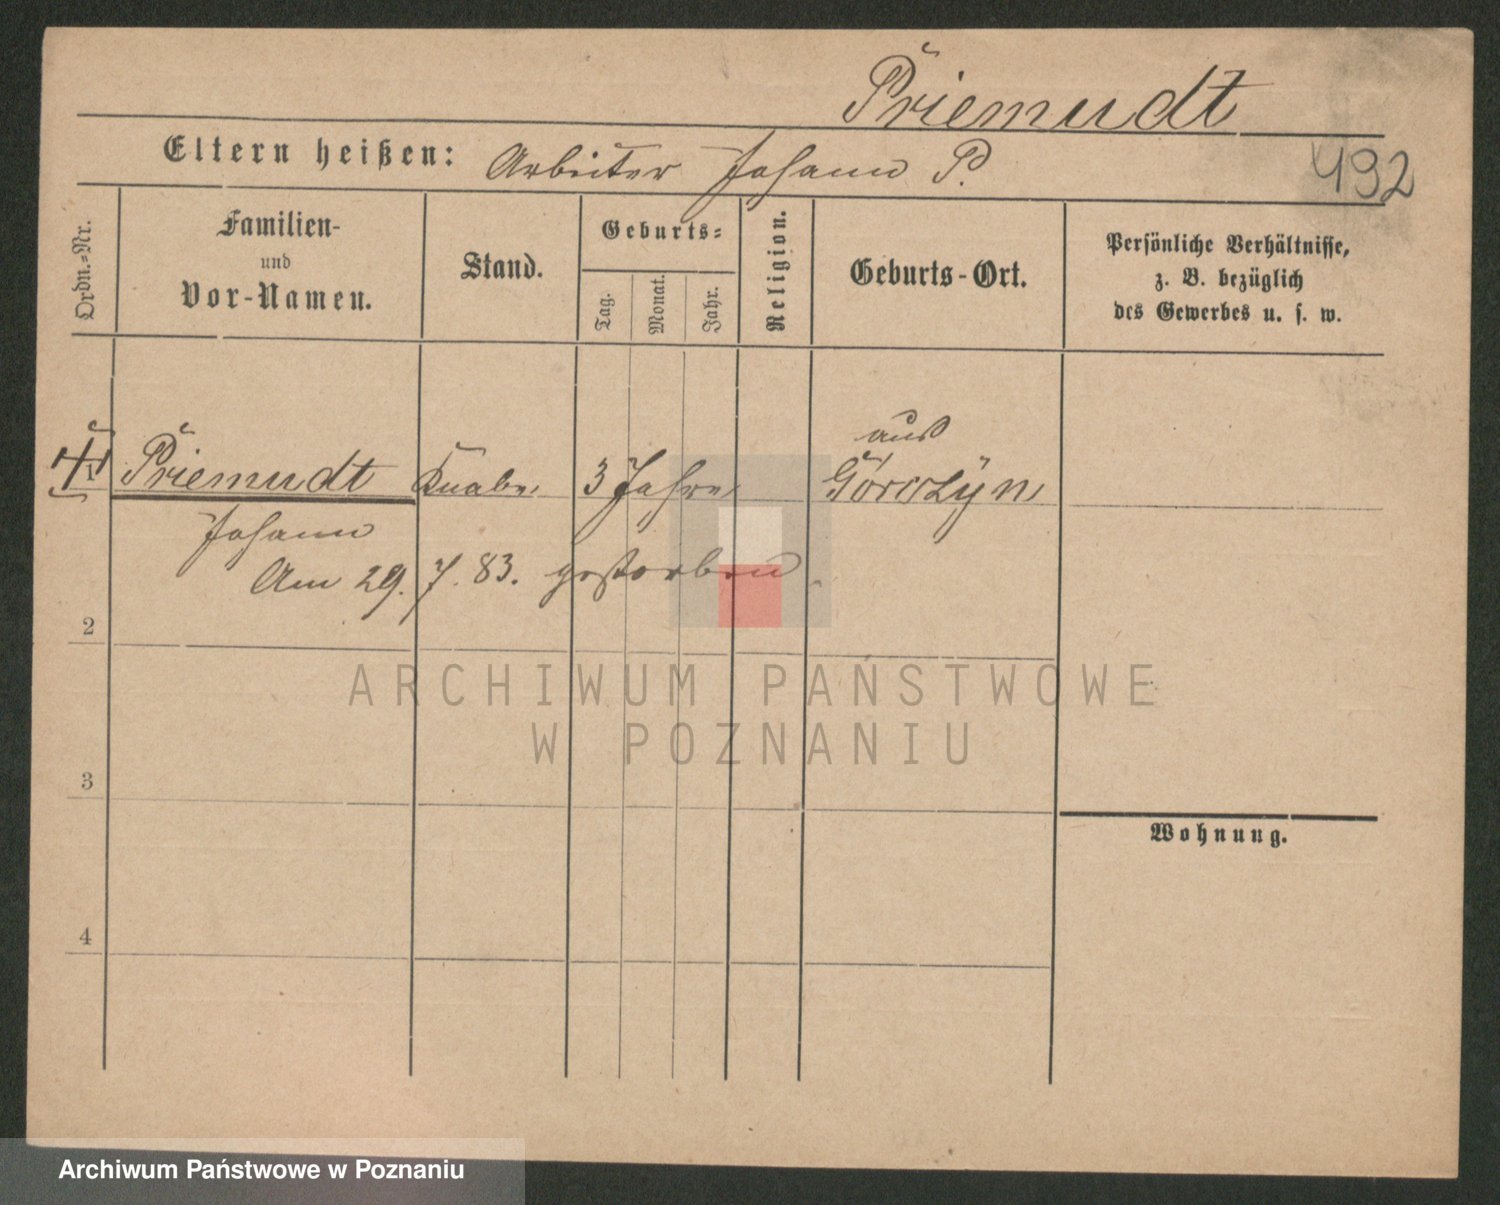 Priemudt
Eltern heißen: Arbeiter Johann P.
492
Ordn.-Nr.
Familien-
und
Vor-Namen.
Stand.
Geburts-
Tag.
Monat.
Jahr.
Religion.
Geburts-Ort.
Persönliche Verhältnisse,
z. B. bezüglich
des Gewerbes u. s. w.
aus
1 Priemudt Knabe 3 Jahre
Johann
Am 29. 7. 83. gestorben
2
3
4
Wohnung.
ARCHIWUM PAŃSTWOWE
W POZNANIU
Archiwum Państwowe w Poznaniu